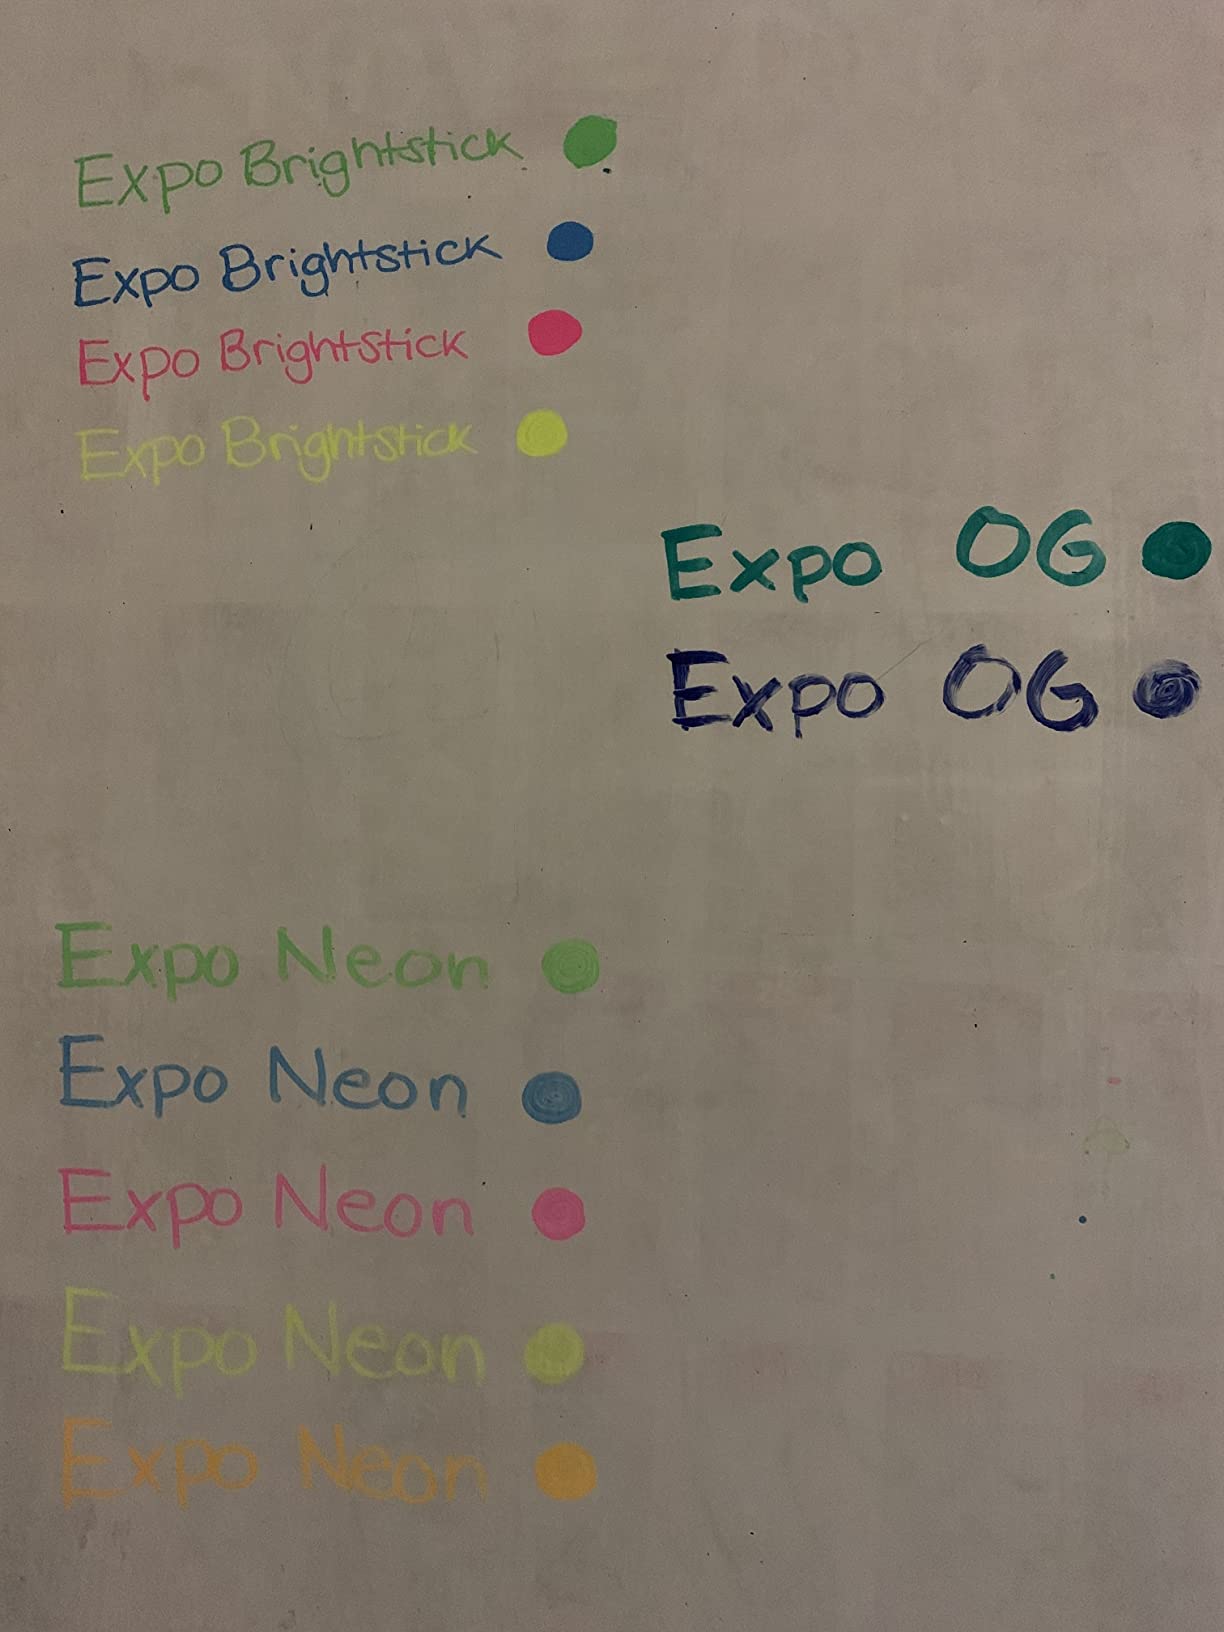 Expo Brightstick
Expo Brightstick
Expo Brightstick
Expo Brightstick
Expo OG
Expo OG
Expo Neon
Expo Neon
Expo Neon
Expo Neon
Expo Neon